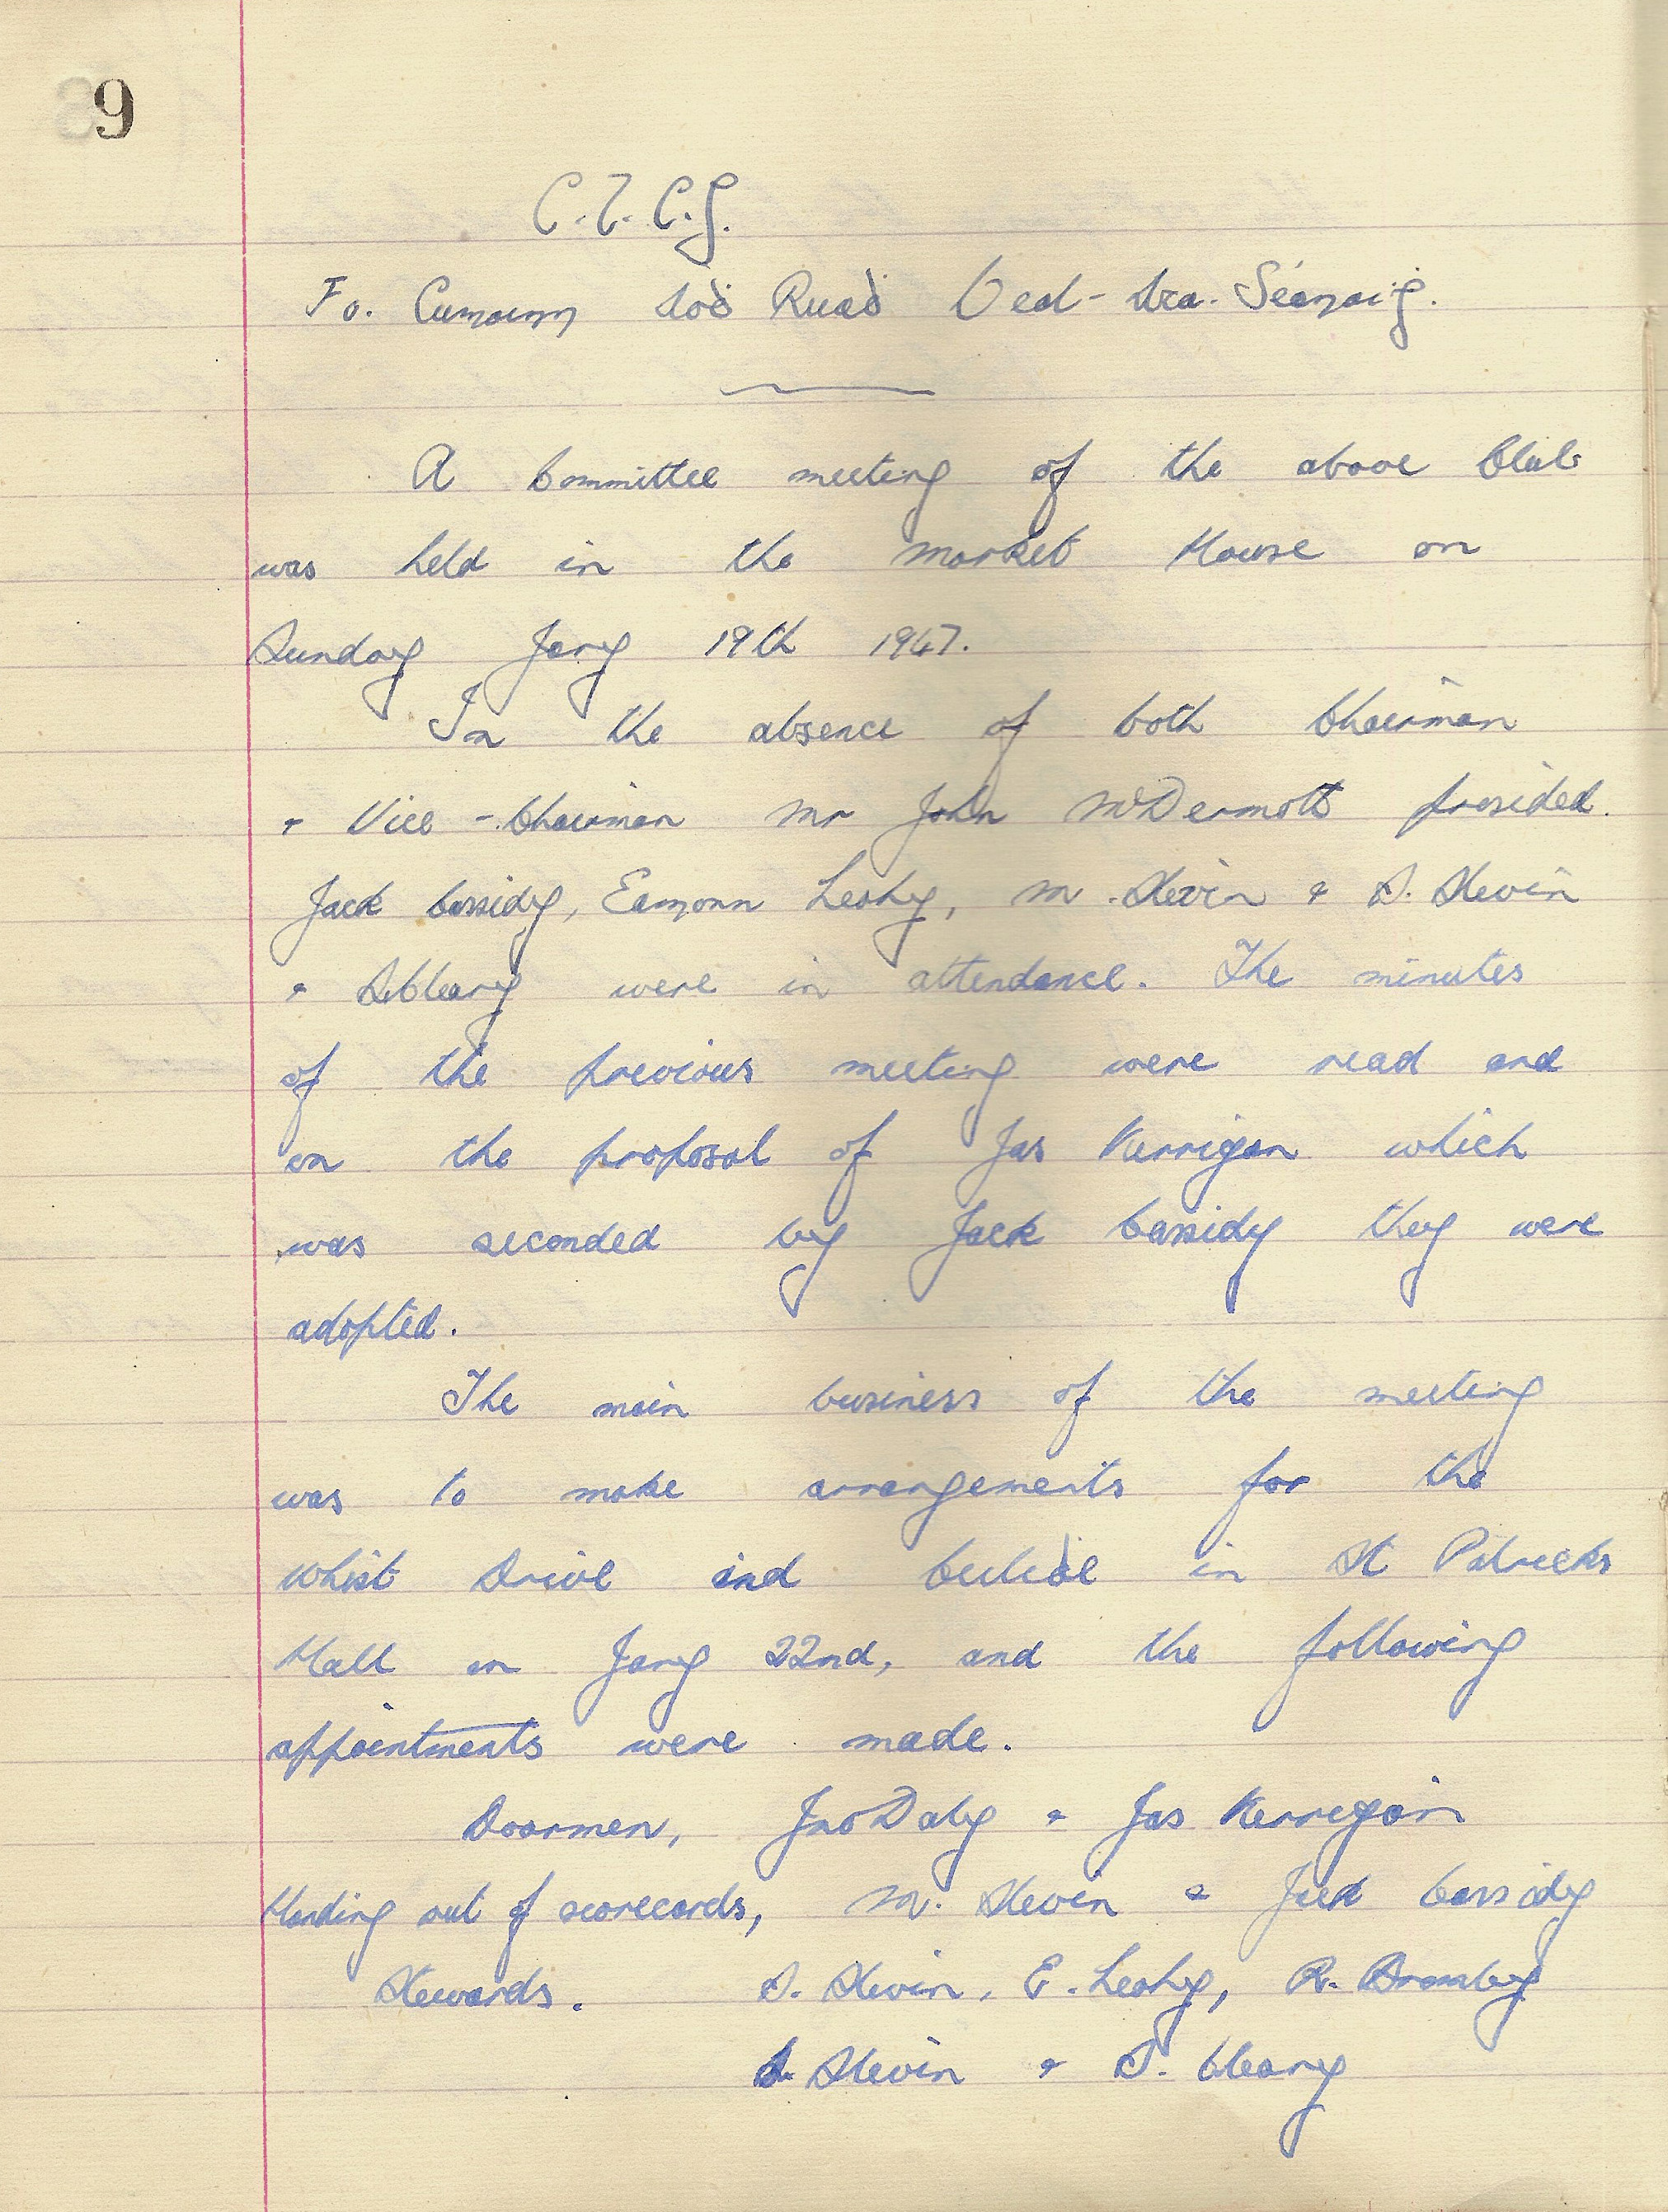 9
C.L.C.G.
Fo. Cumann Aoḋ Ruaḋ Beal-Áṫa-Séanaiġ.
A Committee meeting of the above Club
was held in the Market House on
Sunday Jany 19th 1947.
In the absence of both Chairman
+ Vice-Chairman Mr John McDermott presided.
Jack Cassidy, Eamonn Leahy, M. Slevin + S. Slevin
+ S Cleary were in attendance. The minutes
of the previous meeting were read and
on the proposal of Jas Kerrigan which
was seconded by Jack Cassidy they were
adopted.
The main business of the meeting
was to make arrangements for the
Whist Drive and Ceiliḋe in St Patricks
Hall on Jany 22nd, and the following
appointments were made.
Doormen, Jno Daly + Jas Kerrigan
Handing out of scorecards, M. Slevin + Jack Cassidy
Stewards. S. Slevin, E. Leahy, R.
Slevin + S. Cleary